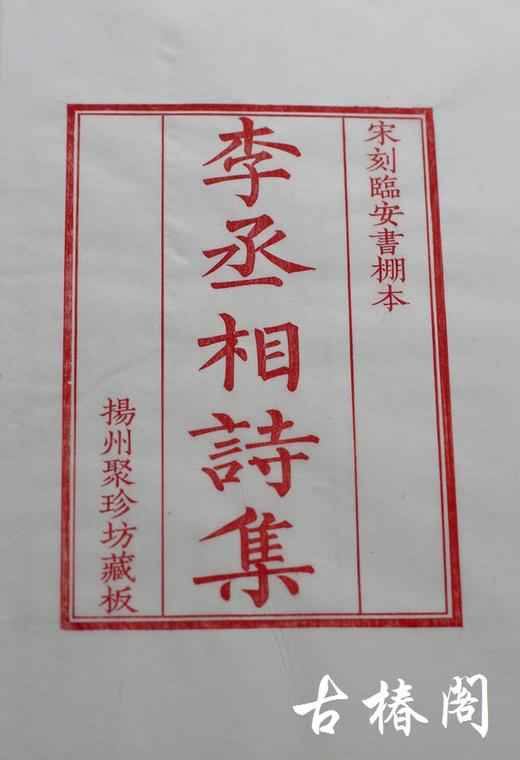 宋刻臨安書棚本
李丞相詩集
揚州聚珍坊藏板
古椿閣